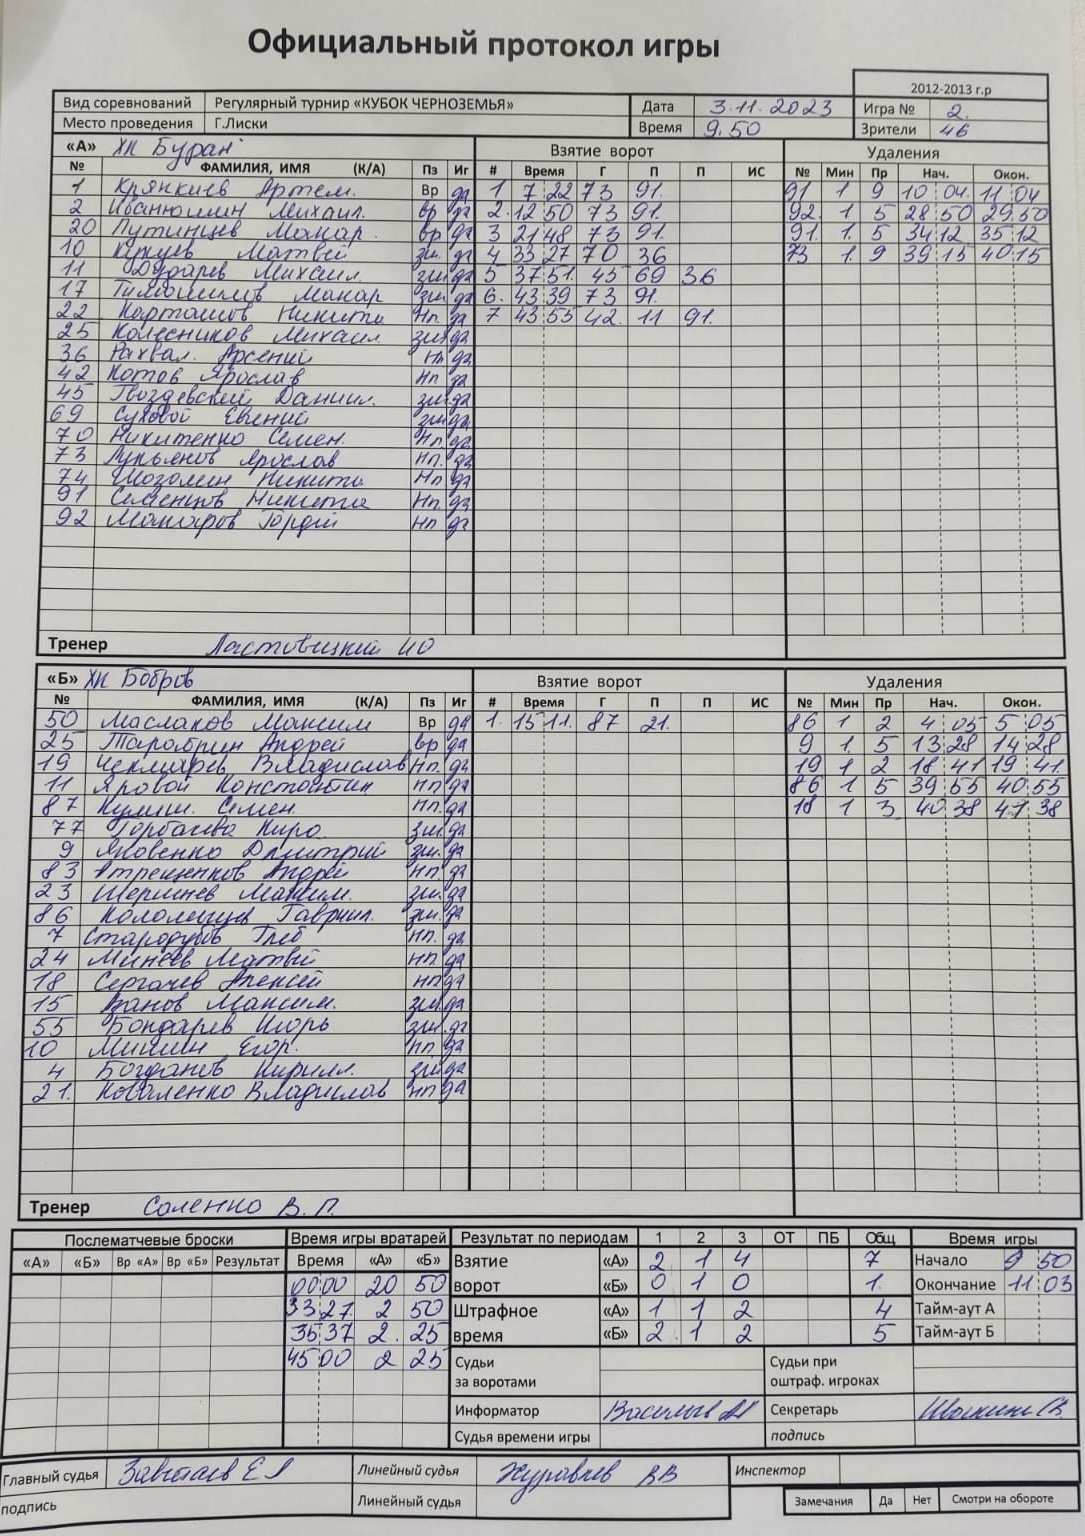 Официальный протокол игры
2012-2013 г.р
Вид соревнований Регулярный турнир «КУБОК ЧЕРНОЗЕМЬЯ» Дата 3.11.2023 Игра № 2.
Место проведения Г.Лиски Время 9.50 Зрители 46
«А» ХК Буран Взятие ворот Удаления
№ ФАМИЛИЯ, ИМЯ (К/А) Пз Иг # Время Г П П ИС № Мин Пр Нач. Окон.
1 Артем. Вр да 1 7 22 73 91. 91 1 9 10 04 11 04
2 Михаил. вр да 2. 12 50 73 91. 92 1 5 28 50 29 50
20 Путинцев Макар вр да 3 21 48 73 91. 91 1. 5 34 12 35 12
10 Матвей зщ да 4 33 27 70 36 73 1. 9 39 15 40 15
11 Дударев Михаил. зщ да 5 37 51. 45 69 36
17 Макар зщ да 6. 43 39 73 91.
22 Карташов Никита Нп. да 7 43 55 42. 11 91.
25 Колесников Михаил зщ да
36 Рахвал. Арсений Нп да
42 Котов Ярослав Нп да
45 Гвоздевский Даниил. зщ да
69 Суховой Евгений зщ да
70 Никитенко Семен. Нп. да
73 Лукьянов Ярослав Нп. да
74 Никита Нп да
91 Семенцов Никита Нп. да
92 Макаров Гордей Нп да
Тренер
«Б» ХК Бобров Взятие ворот Удаления
№ ФАМИЛИЯ, ИМЯ (К/А) Пз Иг # Время Г П П ИС № Мин Пр Нач. Окон.
50 Маслаков Максим Вр да 1. 15 11. 87 21. 86 1 2 4 05 5 05
25 Тарабрин Андрей вр да 9 1. 5 13 28 14 28
19 Чекмарев Владислав Нп. да 19 1 2 18 41 19 41.
11 Яровой Константин нп да 86 1 5 39 55 40 55
87 Кулиш. Семен нп. да 18 1 3 40 38 41 38
77 Горбачева Кира. зщ. да
9 Яковенко Дмитрий зщ. да
83 Андрей нп. да
23 Максим. зщ. да
86 Гавриил. зщ. да
7 Стародубов Глеб нп. да
24 Минеев Матвей нп. да
18 Сергачев Алексей нп да
15 Максим. зщ да
55 Бондарев Игорь зщ. да
10 Мишин Егор. нп. да
4 Богданов Кирилл. зщ да
21. Коваленко Владислав нп да
Тренер Соленко В. П.
Послематчевые броски Время игры вратарей Результат по периодам 1 2 3 ОТ ПБ Общ Время игры
«А» «Б» Вр «А» Вр «Б» Результат Время «А» «Б» Взятие «А» 2 1 4 7 Начало 9 50
00 00 20 50 ворот «Б» 0 1 0 1. Окончание 11 03
33 27 2 50 Штрафное «А» 1 1 2 4 Тайм-аут А
35 37 2. 25 время «Б» 2 1 2 5 Тайм-аут Б
45 00 2 25 Судьи Судьи при
за воротами оштраф. игроках
Информатор Секретарь
Судья времени игры подпись
Главный судья Линейный судья Журавлев ВВ Инспектор
подпись Линейный судья Замечания Да Нет Смотри на обороте